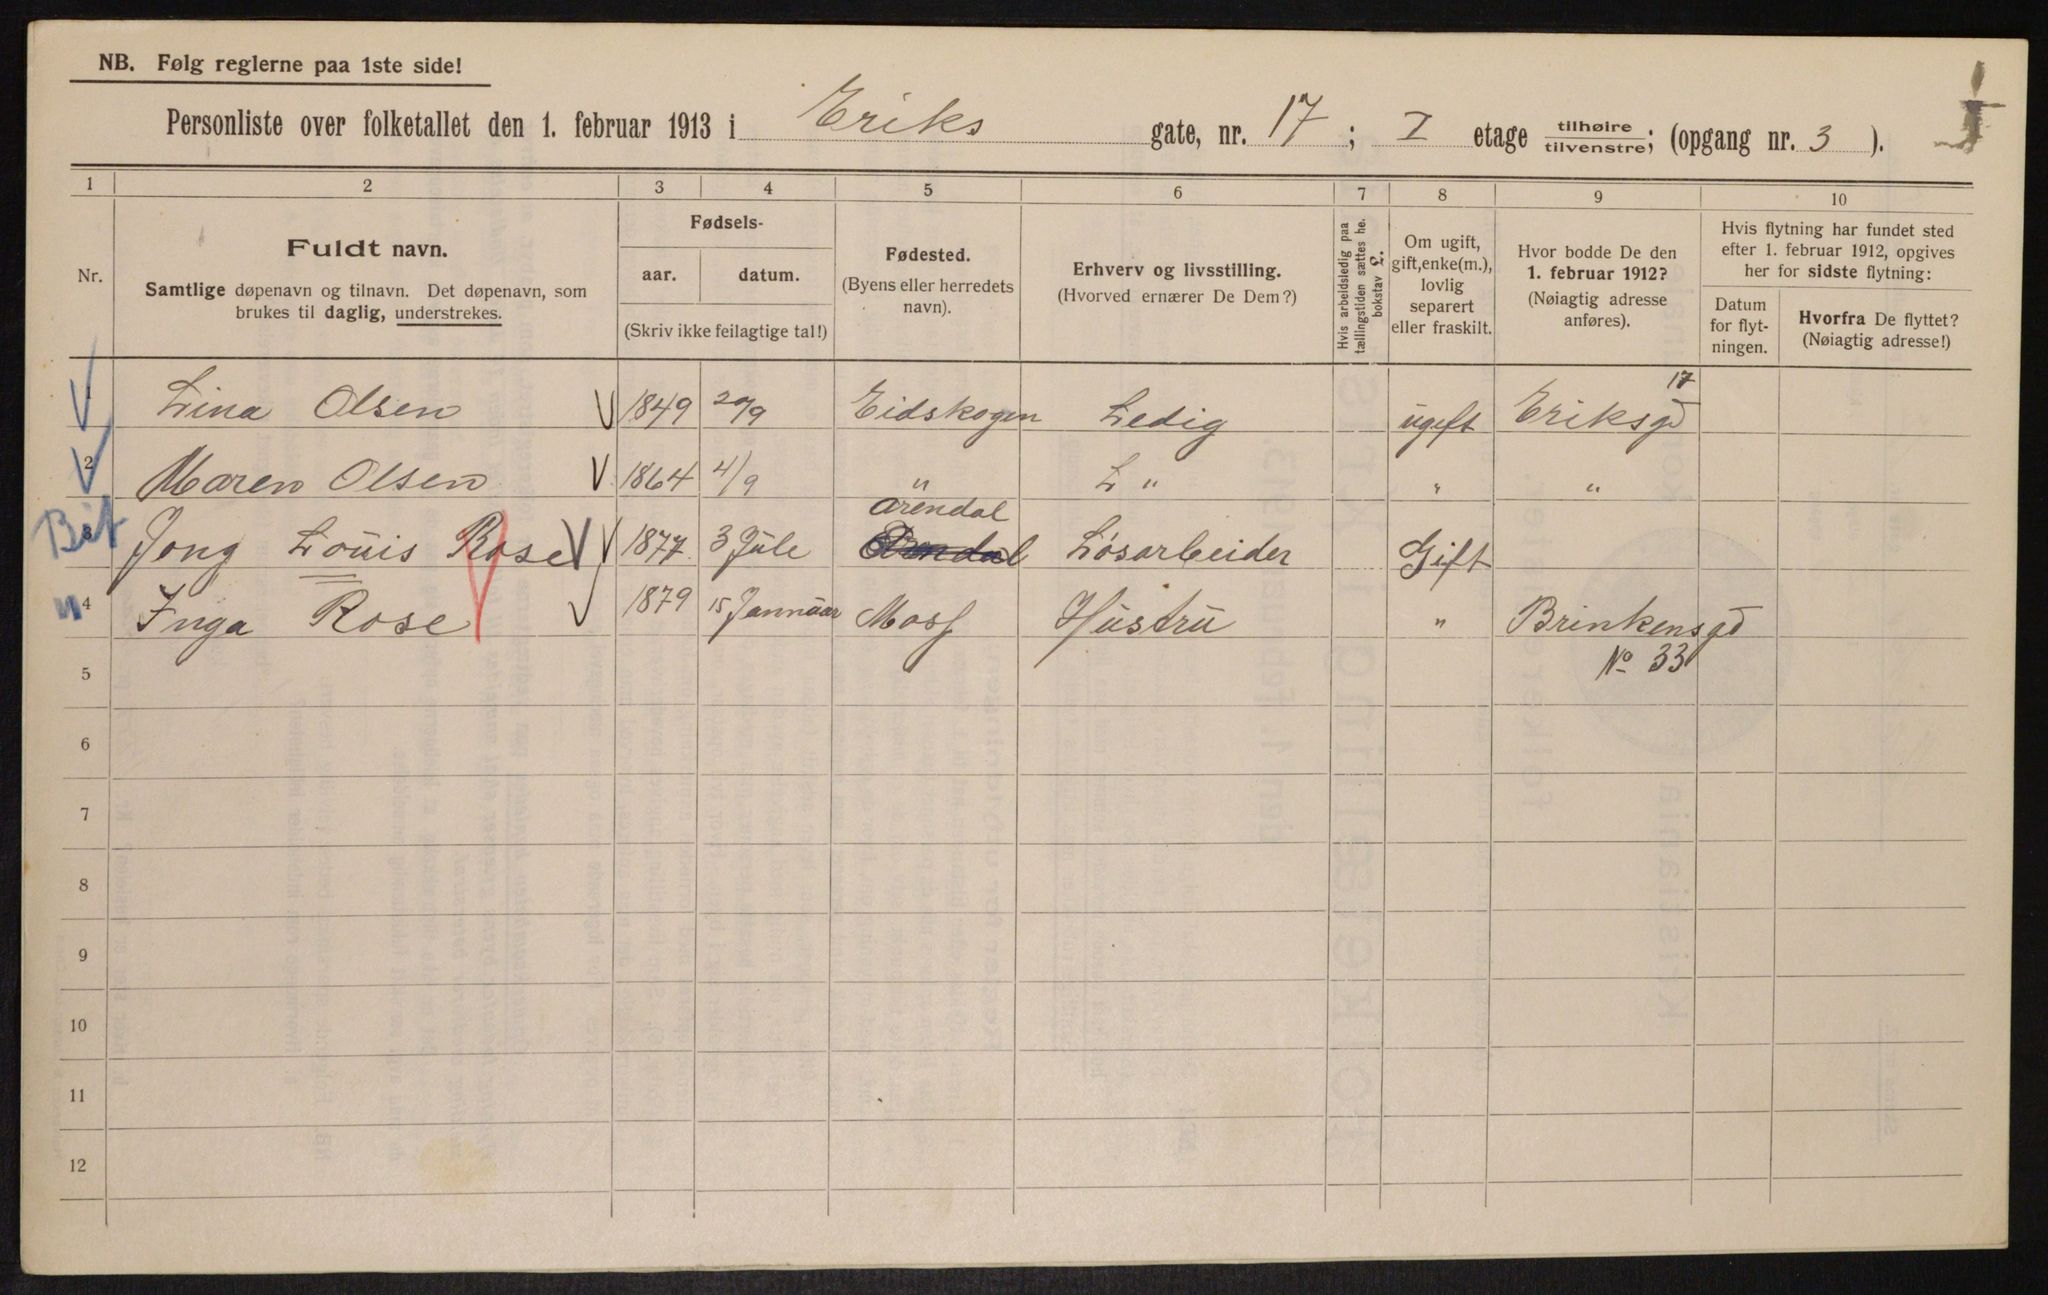 NB. Følg reglerne paa 1ste side!
Personliste over folketallet den 1. februar 1913 i Eriks gate, nr. 17; I etage tilhøire tilvenstre; (opgang nr. 3 ).
1 2 3 4 5 6 7 8 9 10
Nr.
Fuldt navn.
Samtlige døpenavn og tilnavn. Det døpenavn, som
brukes til daglig, understrekes.
Fødsels-
aar. datum.
(Skriv ikke feilagtige tal!)
Fødested.
(Byens eller herredets
navn).
Erhverv og livsstilling.
(Hvorved ernærer De Dem?)
Hvis arbeidsledig paa
tællingstiden sættes he.
bokstav L.
Om ugift,
gift, enke(m.),
lovlig
separert
eller fraskilt.
Hvor bodde De den
1. februar 1912?
(Nøiagtig adresse
anføres).
Hvis flytning har fundet sted
efter 1. februar 1912, opgives
her for sidste flytning:
Datum
for flyt-
ningen.
Hvorfra De flyttet?
(Nøiagtig adresse!)
1 Lina Olsen 1849 20/9 Eidskogen Ledig ugift Eriksgd 17
2 Maren Olsen 1864 4/9 " L " " "
3 Jong Louis Rose 1877 3 Jule Arendal Løsarbeider Gift
4 Inga Rose 1879 15 Januar Moss Hustru " Brinkensgd
5 No 33
6
7
8
9
10
11
12